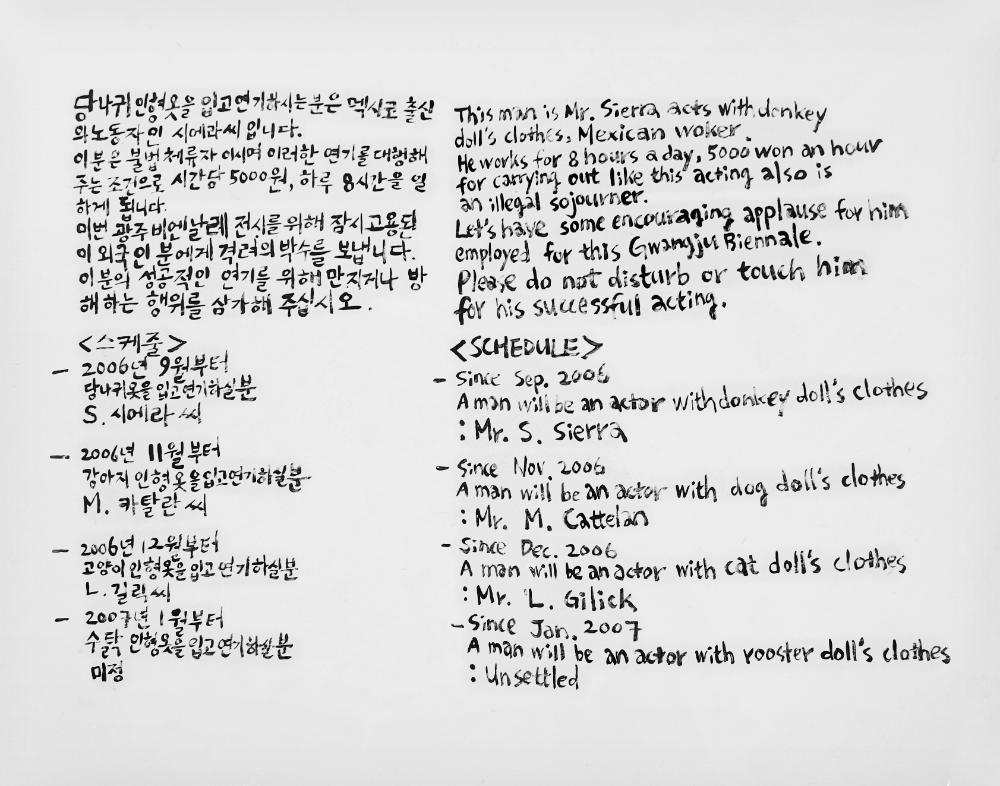 당나귀 인형옷을 입고 연기하시는 분은 멕시코 출신
의 노동자인 시에라씨 입니다.
이분은 불법체류자 이시며 이러한 연기를 대행해
주는 조건으로 시간당 5000원, 하루 8시간을 일
하게 됩니다.
이번 광주비엔날레 전시를 위해 잠시 고용된
이 외국인 분에게 격려의 박수를 보냅니다.
이분의 성공적인 연기를 위해 만지거나 방
해하는 행위를 삼가해 주십시오.
<스케줄>
- 2006년 9월부터
당나귀옷을 입고연기하실분
S. 시에라 씨
- 2006년 11월부터
강아지 인형옷을 입고연기하실분
M. 카탈란 씨
- 2006년 12월부터
고양이 인형옷을 입고 연기하실분
L. 길릭 씨
- 2007년 1월부터
수탉 인형옷을 입고연기하실분
미정
This man is Mr. Sierra acts with donkey
doll's clothes, Mexican woker.
He works for 8 hours a day, 5000 won an hour
for carrying out like this acting also is
an illegal sojourner.
Let's have some encouraging applause for him
employed for this Gwangju Biennale.
Please do not disturb or touch him
for his successful acting.
<SCHEDULE>
- Since Sep. 2006
A man will be an actor with donkey doll's clothes
: Mr. S. Sierra
- Since Nov. 2006
A man will be an actor with dog doll's clothes
: Mr. M. Cattelan
- Since Dec. 2006
A man will be an actor with cat doll's clothes
: Mr. L. Gilick
- Since Jan. 2007
A man will be an actor with rooster doll's clothes
: Unsettled